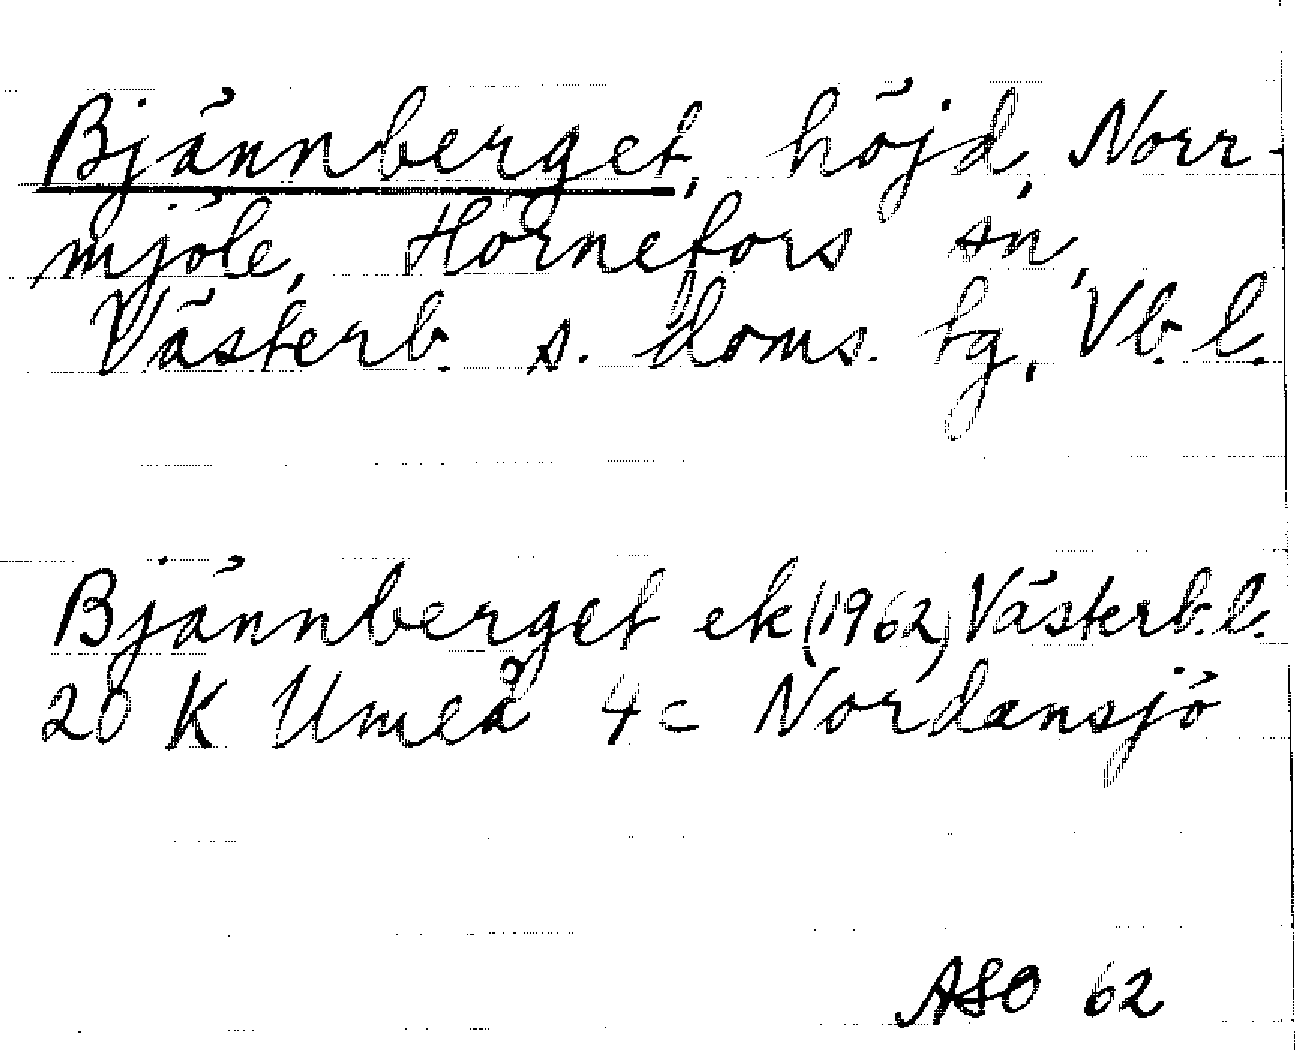 Bjännberget, höjd, Norr-
mjöle, Hörnefors sn,
Västerb. s. doms. tg, Vb. l.
Bjännberget ek (1962) Västerb. l.
20 K Umeå 4c Nordansjö
ASO 62